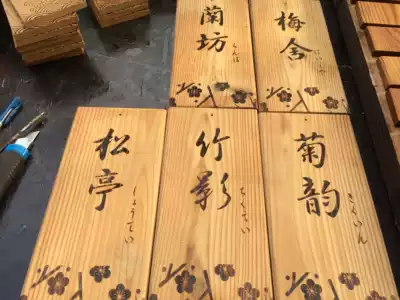 梅舎
蘭坊
菊韻
きくいん
竹影
ちくえい
松亭
しょうてい